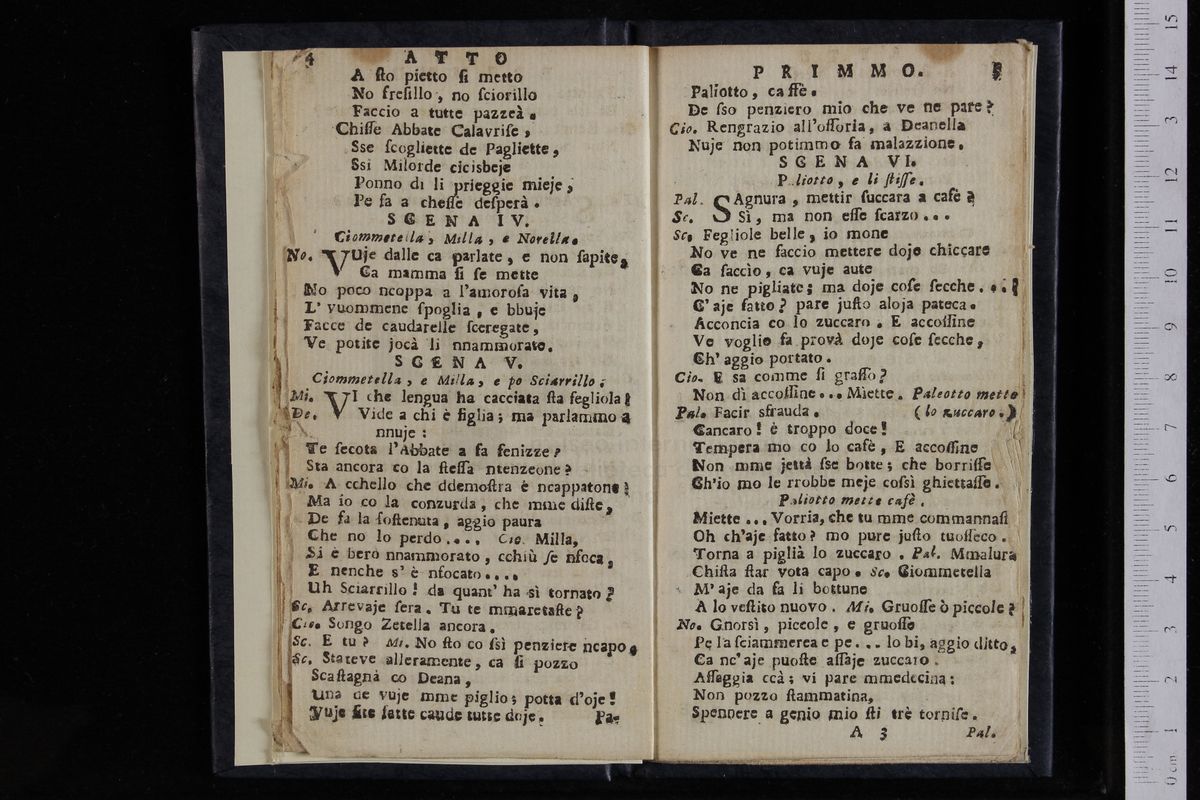 4 ATTO
A ſto pietto ſi metto
No freſillo, no ſciorillo
Faccio a tutte pazzeà.
Chiſſe Abbate Calavriſe,
Sse ſcogliette de Pagliette,
Ssi Milorde cicisbeje
Ponno di li prieggie mieje,
Pe fa a cheſſe deſperà.
SCENA IV.
Ciommetella, Milla, e Norella.
No. VUje dalle ca parlate, e non ſapite,
Ca mamma ſi ſe mette
No poco ncoppa a l'amoroſa vita,
L' vuommene ſpoglia, e bbuje
Facce de caudarelle ſceregate,
Ve potite jocà li nnammorate.
SCENA V.
Ciommetella, e Milla, e po Sciarrillo.
Mi. VI che lengua ha cacciata ſta fegliola!
De. Vide a chi è figlia; ma parlammo a
nnuje:
Te ſecota l'Abbate a fa fenizze?
Sta ancora co la ſteſſa ntenzeone?
Mi. A cchello che ddemoſtra è ncappatone;
Ma io co la conzurda, che mme diſte,
De fa la ſoſtenuta, aggio paura
Che no lo perdo.... Cio. Milla,
Si è bero nnammorato, cchiù ſe nfoca,
E nenche s' è nfocato....
Uh Sciarrillo! da quant' ha sì tornato?
Sc. Arrevaje ſera. Tu te mmaretaſte?
Cio. Songo Zetella ancora.
Sc. E tu? Mi. No ſto co ſsì penziere ncapo,
Sc. Stateve alleramente, ca ſi pozzo
Scaſtagnà co Deana,
Una de vuje mme piglio; potta d'oje!
Vuje ſite fatte caude tutte doje. Pa-
PRIMMO. 5
Paliotto, caffè.
De ſso penziero mio che ve ne pare?
Cio. Rengrazio all'oſſoria, a Deanella
Nuje non potimmo fa malazzione.
SCENA VI.
Paliotto, e li ſtiſſe.
Pal. SAgnura, mettir ſuccara a cafè?
Sc. Sì, ma non eſſe ſcarzo...
Sc. Fegliole belle, io mone
No ve ne faccio mettere doje chiccare
Ca faccìo, ca vuje aute
No ne pigliate; ma doje coſe ſecche...?
C' aje fatto? pare juſto aloja pateca.
Acconcia co lo zuccaro. E accoſſine
Ve voglio fa provà doje coſe ſecche,
Ch' aggio portato.
Cio. E sa comme ſi graſſo?
Non dì accoſſine... Miette. Paleotto mette
Pal. Facir sfrauda. (lo zuccaro.)
Cancaro! è troppo doce!
Tempera mo co lo cafè, E accoſſine
Non mme jettà ſse botte; che borriſſe
Ch'io mo le rrobbe meje coſsì ghiettaſſe.
Paliotto mette cafè.
Miette... Vorria, che tu mme commannaſi
Oh ch'aje fatto? mo pure juſto tuoſſeco.
Torna a piglià lo zuccaro. Pal. Mmalura
Chiſta ſtar vota capo. Sc. Ciommetella
M' aje da fa li bottune
A lo veſtito nuovo. Mi. Gruoſſe ò piccole?
No. Gnorsì, piccole, e gruoſſe
Pe la ſciammerea e pe... lo bi, aggio ditto,
Ca nc' aje puoſte aſſaje zuccaro.
Aſſaggia ccà; vi pare mmedecina:
Non pozzo ſtammatina,
Spennere a genio mio ſti trè torniſe.
A 3 Pal.
0 cm 1 2 3 4 5 6 7 8 9 10 11 12 13 14 15